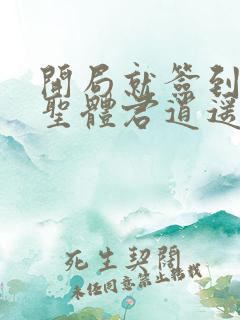 開局就簽到
聖體君逍遥
死生契闊
未任同意禁止轉載